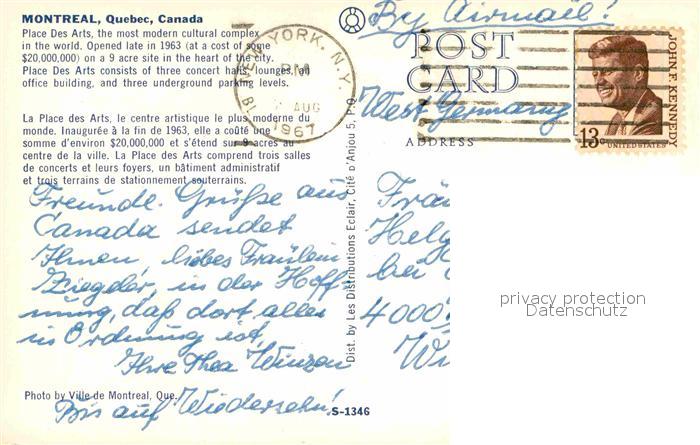 MONTREAL, Quebec, Canada
Place Des Arts, the most modern cultural complex
in the world. Opened late in 1963 (at a cost of some
$20,000,000) on a 9 acre site in the heart of the city.
Place Des Arts consists of three concert halls, lounges, an
office building, and three underground parking levels.
La Place des Arts, le centre artistique le plus moderne du
monde. Inaugurée à la fin de 1963, elle a coûté une
somme d'environ $20,000,000 et s'étend sur 9 acres au
centre de la ville. La Place des Arts comprend trois salles
de concerts et leurs foyers, un bâtiment administratif
et trois terrains de stationnement souterrains.
Freundl. Grüße aus
Canada sendet
Ihnen, liebes Fräulein
Ziegler, in der Hoff
nung, daß dort alles
in Ordnung ist,
Ihre Thea Winzen
Bis auf Wiedersehn!
Photo by Ville de Montreal, Que.
S-1346
Dist. by Les Distributions Eclair, Cité d'Anjou 5, P.Q.
NEW YORK, N.Y.
PM
AUG
1967
By Airmail!
POST
CARD
West Germany
ADDRESS
JOHN F. KENNEDY
13c
UNITED STATES
Fräu
Helg
bei
4000
Wi
privacy protection
Datenschutz